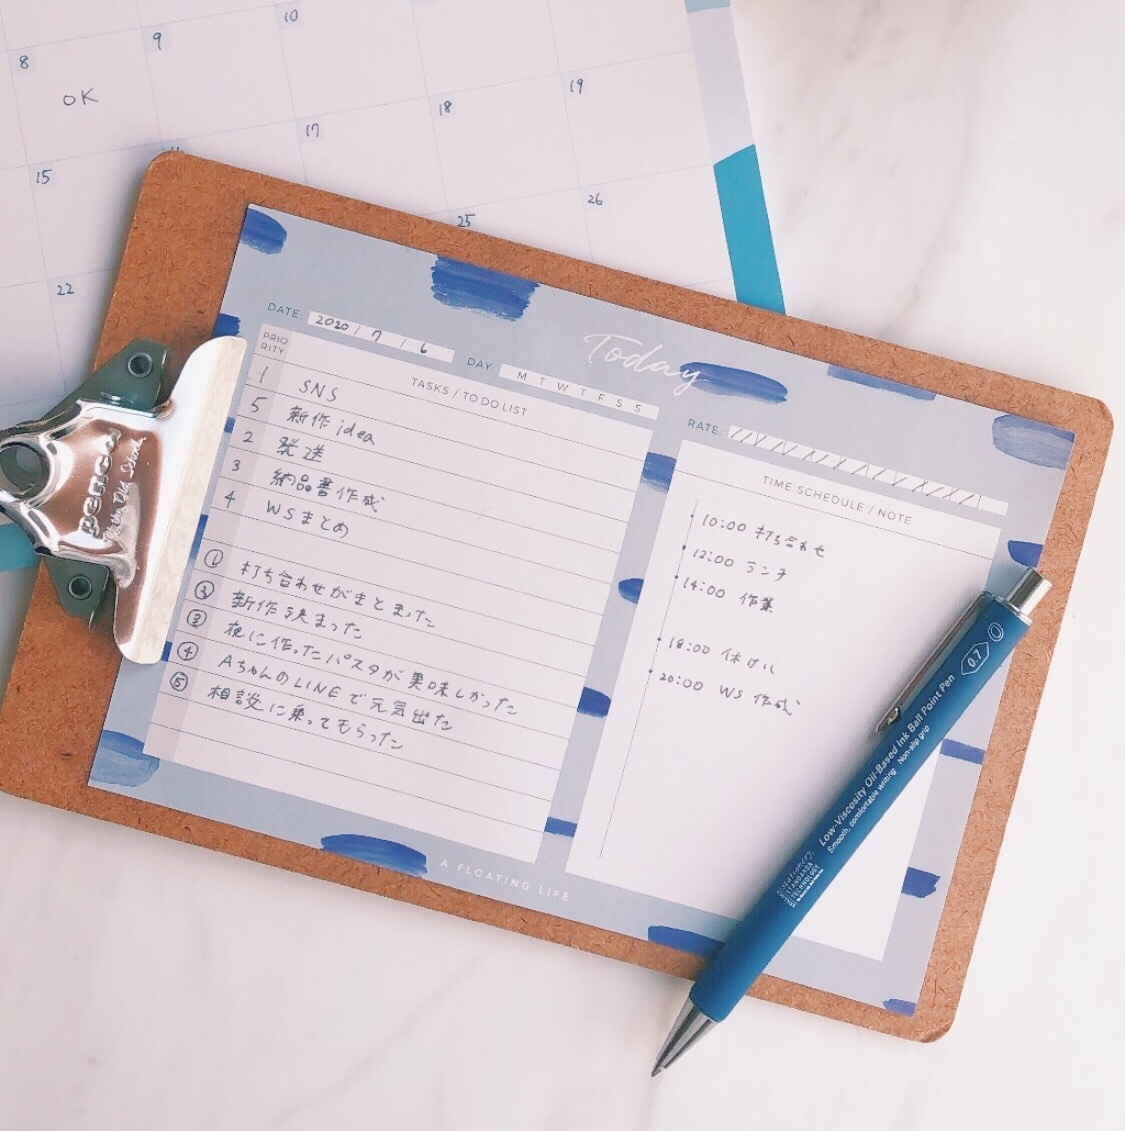 8
9
10
OK
15
17
18
19
22
25
26
DATE: 2020 / 7 / 6
DAY: M T W T F S S
Today
RATE:
PRIO
RITY
TASKS / TO DO LIST
1 SNS
5 新作 idea
2 発送
3 納品書作成
4 WSまとめ
① 打ち合わせがまとまった
② 新作決まった
③ 夜に作ったパスタが美味しかった
④ AちゃんのLINEで元気出た
⑤ 相談に乗ってもらった
TIME SCHEDULE / NOTE
10:00 打ち合わせ
12:00 ランチ
14:00 作業
18:00 休けい
20:00 WS 作成
A FLOATING LIFE
penco
0.7
Low-Viscosity Oil-Based Ink Ball Point Pen
Smooth, comfortable writing Non-slip grip
STANDARD
TECHNOLOGY